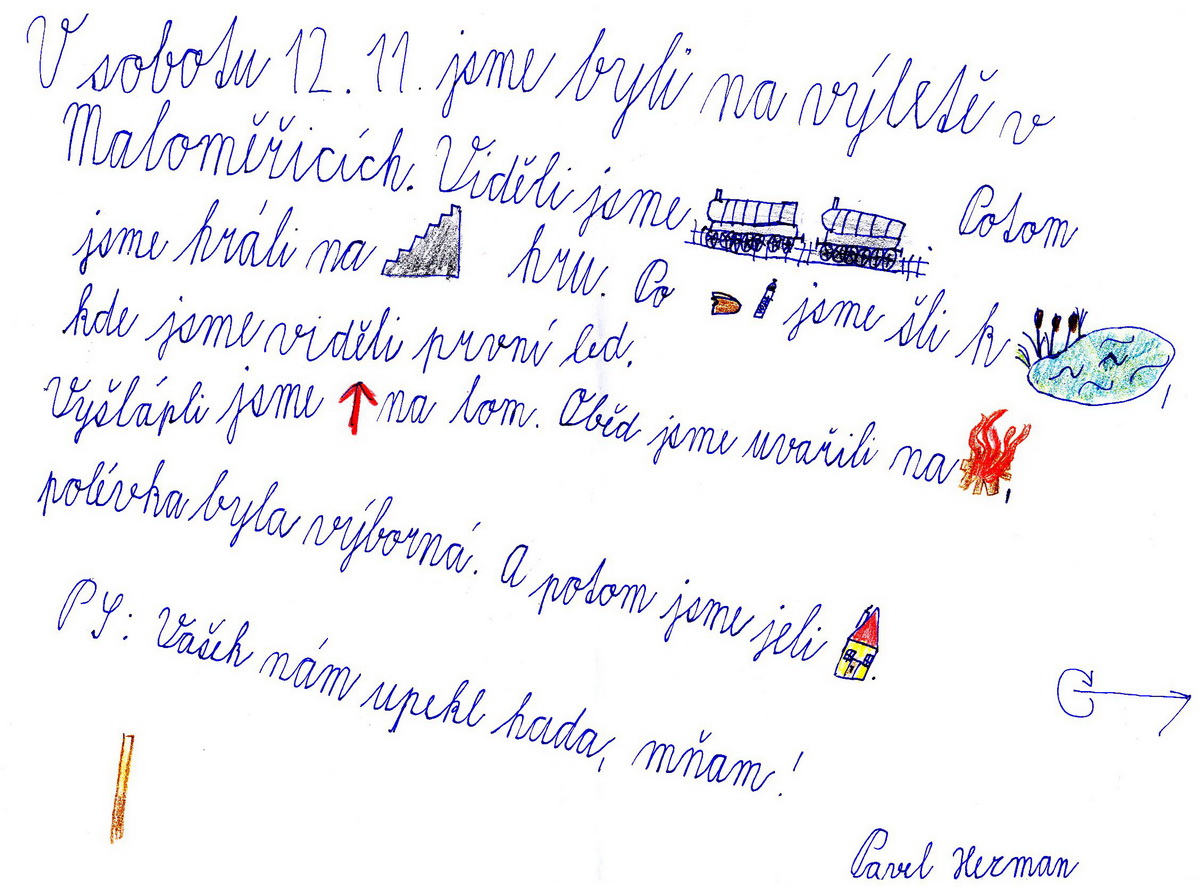 V sobotu 12. 11. jsme byli na výletě v
Maloměřicích. Viděli jsme . Potom
jsme hráli na hru. Po jsme šli k ,
kde jsme viděli první led.
Vyšlápli jsme na lom. Oběd jsme uvařili na ,
polévka byla výborná. A potom jsme jeli .
PS: Vašek nám upekl hada, mňam!
Pavel Herman